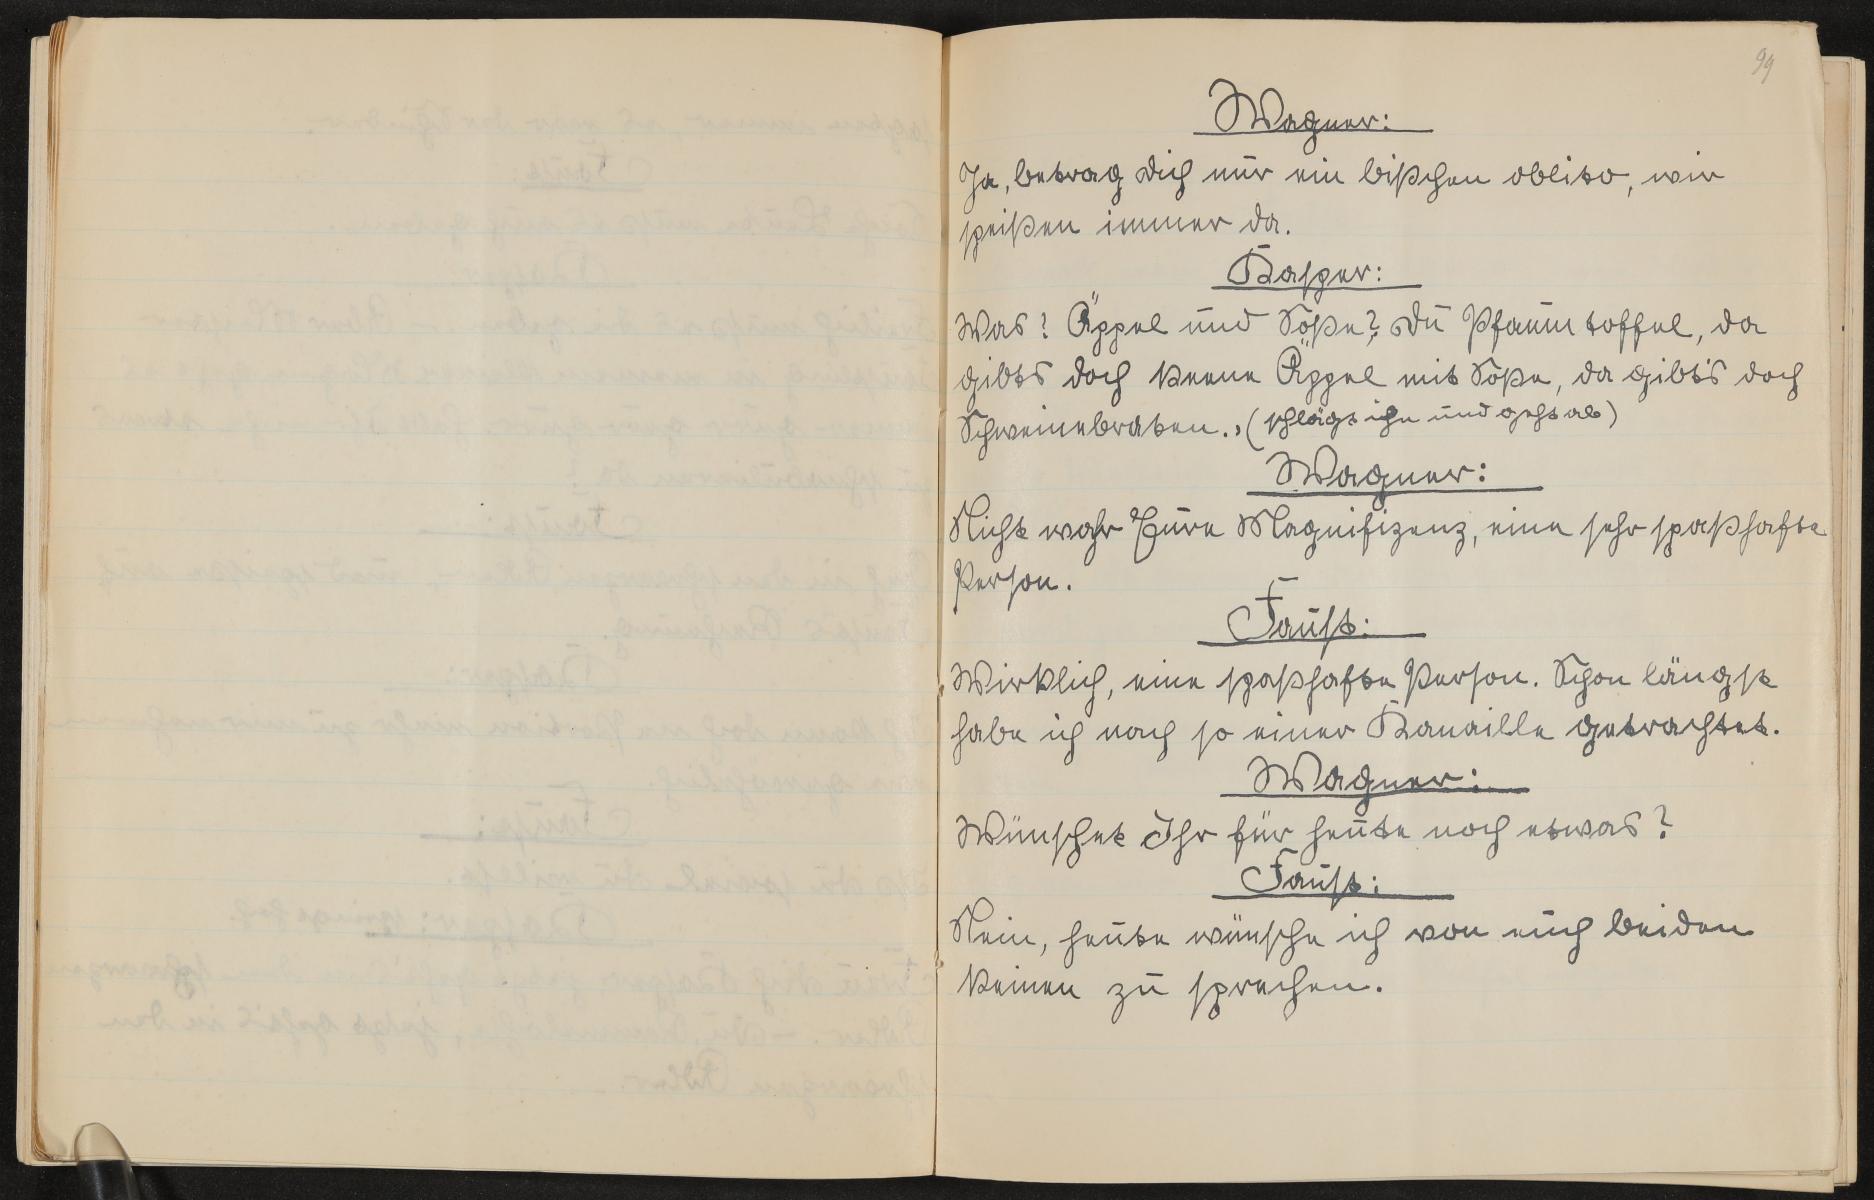 99
Wagner:
Ja, betrag dich nur ein bißchen obliko, wir
speißen immer da.
Kasper:
Was? Äppel und Soße? Du Pflaumtoffel, da
gibts doch keene Äppel mit Soße, da gibt's doch
Schweinebraten., (schlägt ihn und geht ab)
Wagner:
Nicht wahr Eure Magnifizenz, eine sehr spaßhafte
Person.
Faust:
Wirklich, eine spaßhafte Person. Schon längst
habe ich nach so einer Kanaille getrachtet.
Wagner:
Wünschet Ihr für heute noch etwas?
Faust:
Nein, heute wünsche ich von euch beiden
keinen zu sprechen.